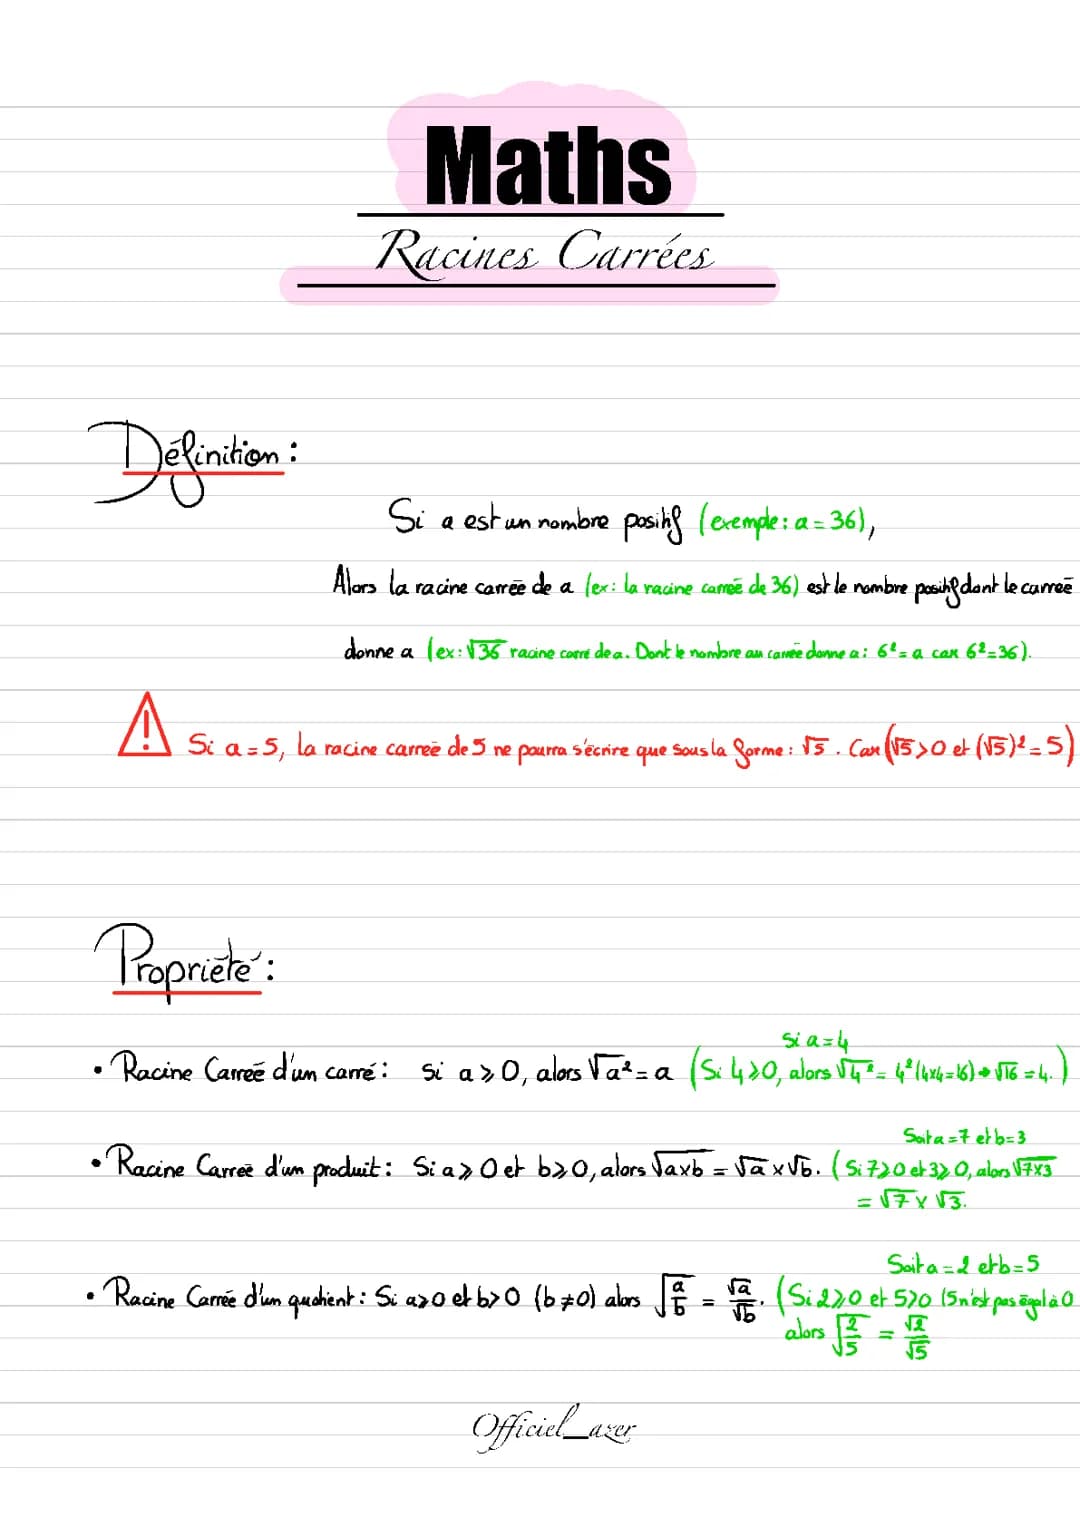 Maths
Racines Carrées
Définition :
Si a est un nombre positif (exemple : a = 36),
Alors la racine carrée de a (ex : la racine carrée de 36) est le nombre positif dont le carreé
donne a (ex : √36 racine carré de a. Dont le nombre au carrée donne a : 6² = a car 6² = 36).
Si a = 5, la racine carreé de 5 ne pourra s'écrire que sous la forme : √5 . Car (√5 > 0 et (√5)² = 5)
Propriété :
Si a = 4
• Racine Carreé d'un carré : Si a ⩾ 0, alors √a² = a (Si 4 ⩾ 0, alors √4² = 4² (4x4=16) → √16 = 4. )
Soit a = 7 et b = 3
• Racine Carreé d'un produit : Si a ⩾ 0 et b ⩾ 0, alors √axb = √a x √b. ( Si 7 ⩾ 0 et 3 ⩾ 0, alors √7x3
= √7 x √3.
Soit a = 2 et b = 5
• Racine Carrée d'un quotient : Si a ⩾ 0 et b > 0 (b ≠ 0) alors √a/b = √a/√b. ( Si 2 ⩾ 0 et 5 > 0 (5 n'est pas égal à 0
alors √2/5 = √2/√5
Officiel_azer